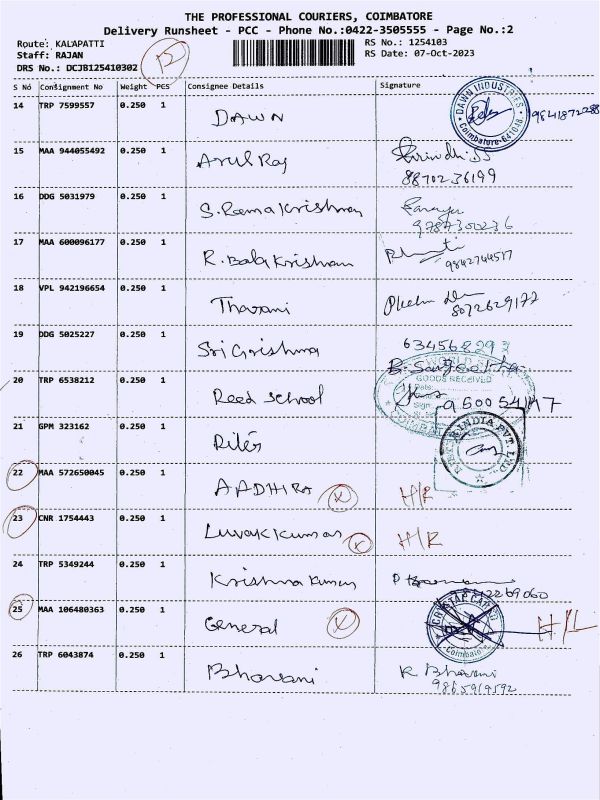 THE PROFESSIONAL COURIERS, COIMBATORE
Delivery Runsheet - PCC - Phone No.:0422-3505555 - Page No.:2
Route: KALAPATTI
Staff: RAJAN
DRS No.: DCJB125410302
12
RS No.: 1254103
RS Date: 07-Oct-2023
S No Consignment No Weight PCS Consignee Details Signature
14 TRP 7599557 0.250 1 DAWN DAWN INDUSTRIES Coimbatore
15 MAA 944055492 0.250 1 Arul Raj
8870236199
16 DDG 5031979 0.250 1 S. Rama Krishnan
9787300236
17 MAA 600096177 0.250 1 R. Bala Krishnan
18 VPL 942196654 0.250 1 Tharani
8072629177
19 DDG 5025227 0.250 1 Sri Grishma 634568293
B. Sangeetha
20 TRP 6538212 0.250 1 Reed School GOODS RECEIVED
21 GPM 323162 0.250 1 INDIA PVT. LTD
22 MAA 572650045 0.250 1 AADHIRA X H/R
23 CNR 1754443 0.250 1 Luvak Kumar X H/R
24 TRP 5349244 0.250 1 Krishna Kumar
25 MAA 106480363 0.250 1 General X Coimbatore H/L
26 TRP 6043874 0.250 1 Bhavani K Bhavani
9865919592